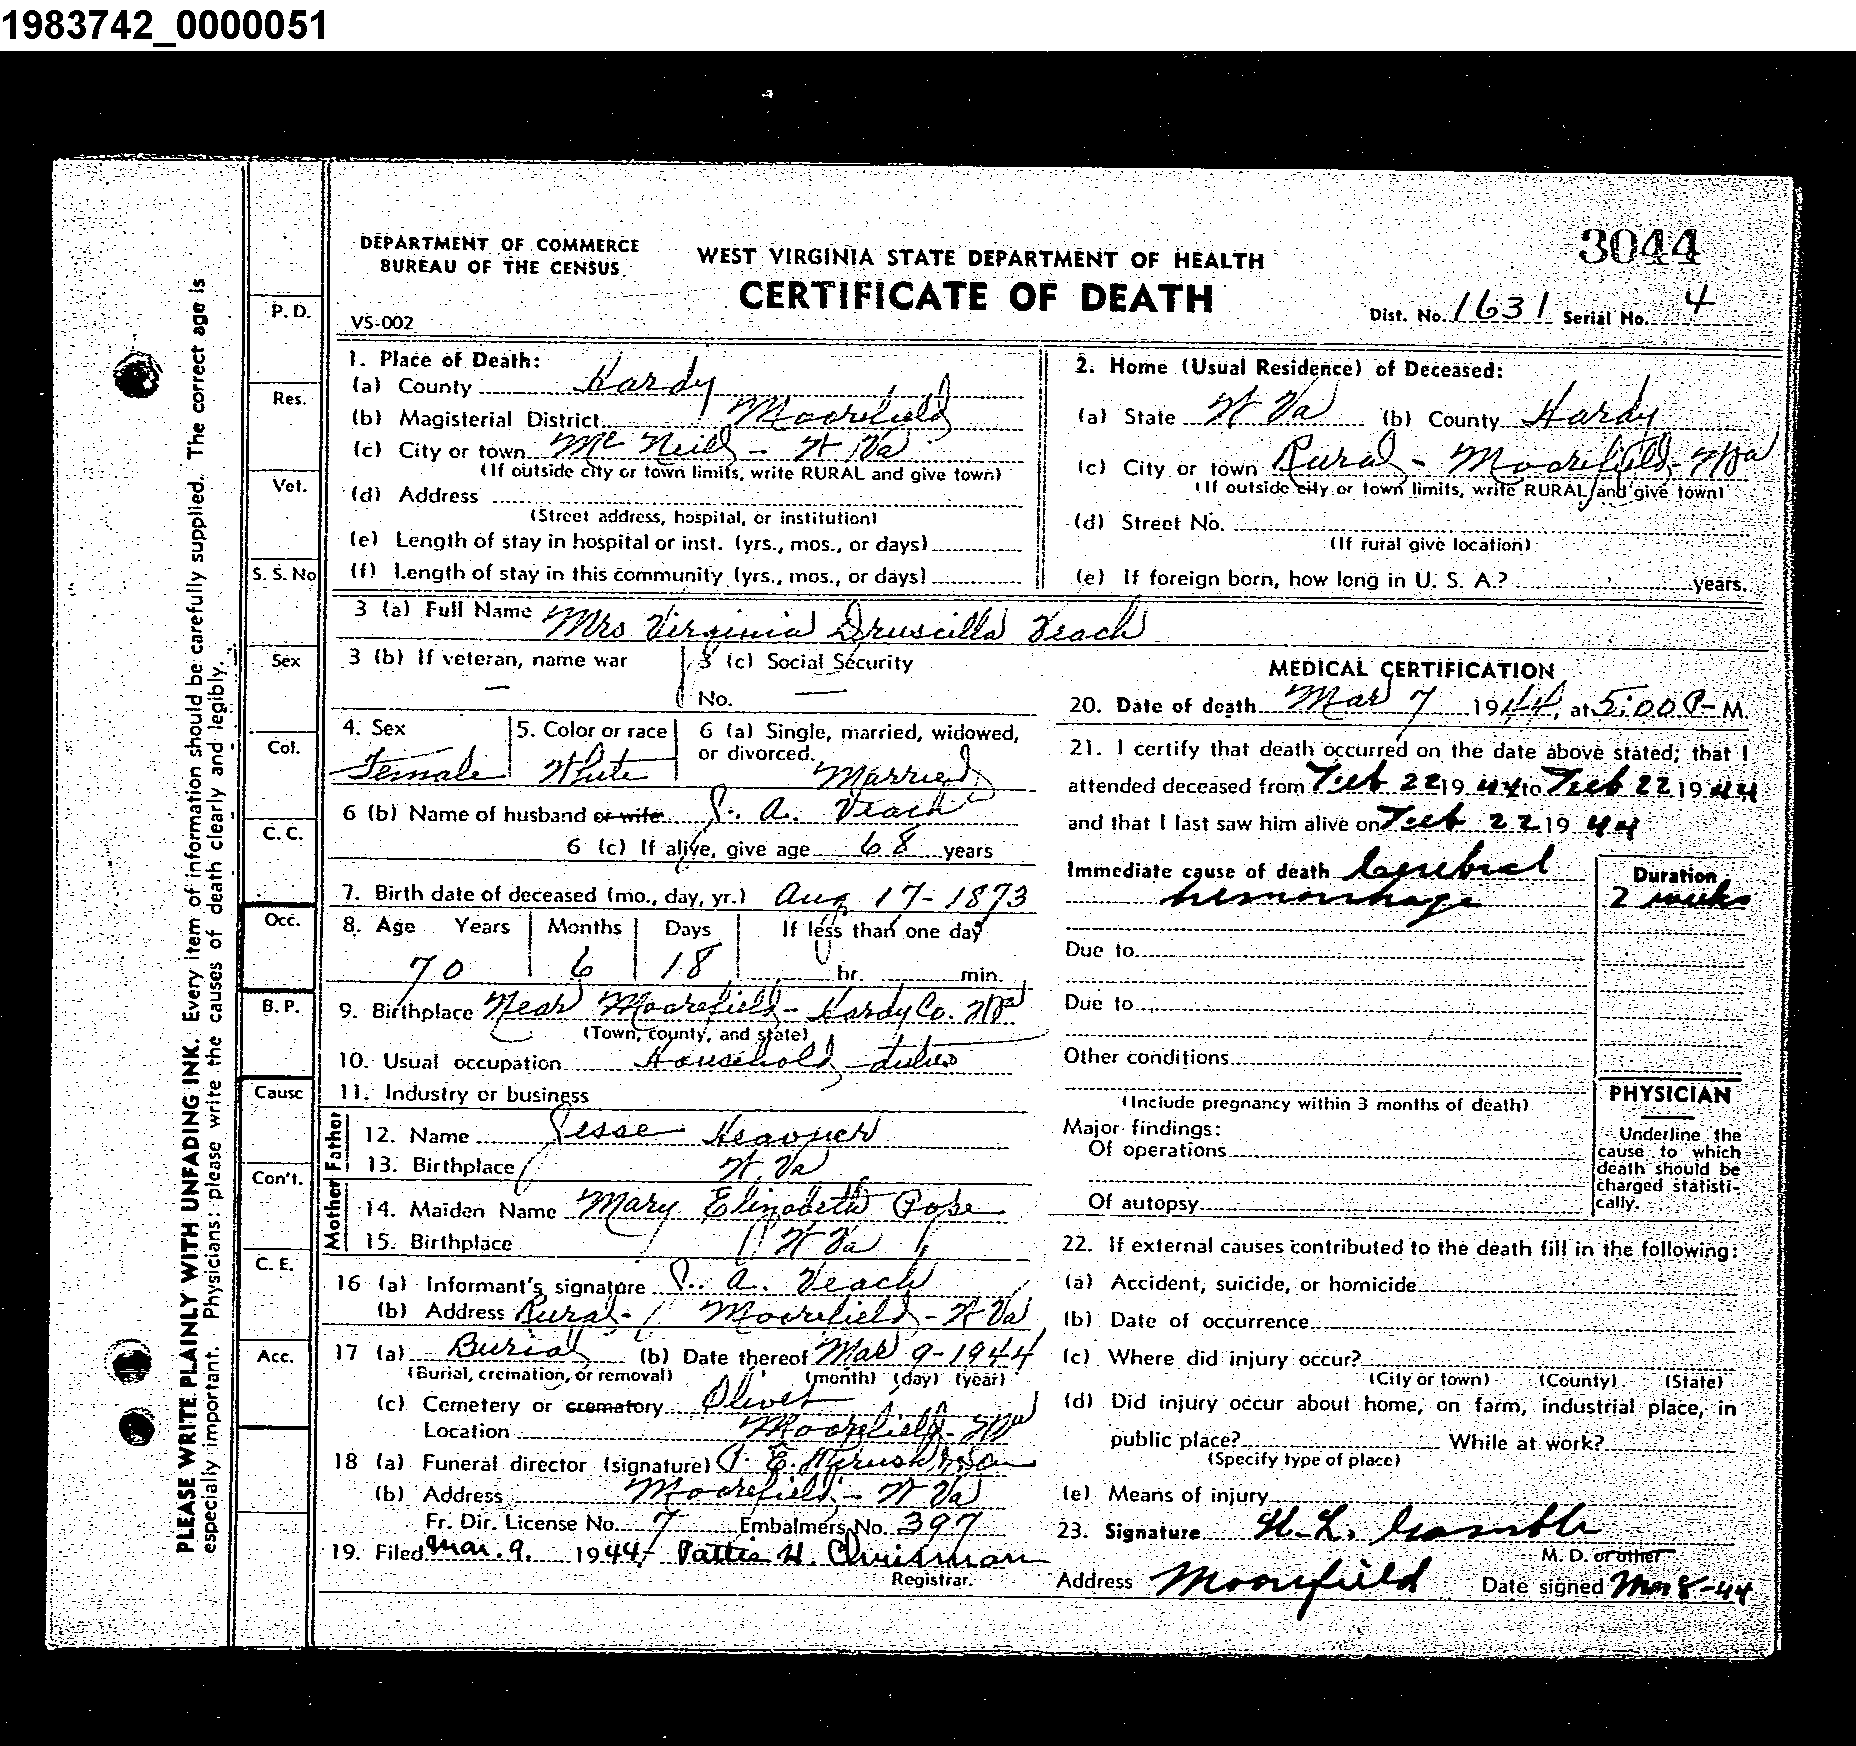 1983742_0000051
3044
DEPARTMENT OF COMMERCE
BUREAU OF THE CENSUS
WEST VIRGINIA STATE DEPARTMENT OF HEALTH
CERTIFICATE OF DEATH
VS-002
Dist. No. 1631 Serial No. 4
PLEASE WRITE PLAINLY WITH UNFADING INK. Every item of information should be carefully supplied. The correct age is
especially important. Physicians: please write the causes of death clearly and legibly.
P. D.
Res.
Vet.
S. S. No
Sex
Col.
C. C.
Occ.
B. P.
Cause
Con't.
C. E.
Acc.
1. Place of Death:
(a) County Hardy
(b) Magisterial District Moorefield
(c) City or town Mc Neill - W Va
(If outside city or town limits, write RURAL and give town)
(d) Address
(Street address, hospital, or institution)
(e) Length of stay in hospital or inst. (yrs., mos., or days)
(f) Length of stay in this community (yrs., mos., or days)
2. Home (Usual Residence) of Deceased:
(a) State W Va (b) County Hardy
(c) City or town Rural - Moorefield - W Va
(If outside city or town limits, write RURAL and give town)
(d) Street No.
(If rural give location)
(e) If foreign born, how long in U. S. A.? years.
3 (a) Full Name Mrs Virginia Druscilla Veach
3 (b) If veteran, name war —
3 (c) Social Security
No. —
4. Sex Female
5. Color or race White
6 (a) Single, married, widowed,
or divorced. Married
6 (b) Name of husband or wife A. Veach
6 (c) If alive, give age 68 years
7. Birth date of deceased (mo., day, yr.) Aug 17 - 1873
8. Age Years Months Days If less than one day
70 6 18 hr. min.
9. Birthplace Near Moorefield - Hardy Co. W Va
(Town, county, and state)
10. Usual occupation Household duties
11. Industry or business
Father
12. Name Jesse Heavner
13. Birthplace W Va
Mother
14. Maiden Name Mary Elizabeth Pope
15. Birthplace W Va
16 (a) Informant's signature A. Veach
(b) Address Rural - Moorefield - W Va
17 (a) Burial (b) Date thereof Mar 9 - 1944
(Burial, cremation, or removal) (month) (day) (year)
(c) Cemetery or crematory Olivet
Location Moorefield - W Va
18 (a) Funeral director (signature) E.
(b) Address Moorefield - W Va
Fr. Dir. License No. 7 Embalmers No. 397
19. Filed Mar. 9. 1944, H. Chrisman
Registrar.
MEDICAL CERTIFICATION
20. Date of death Mar 7 1944, at 5:00 P- M.
21. I certify that death occurred on the date above stated; that I
attended deceased from Feb 22 19 44 to Feb 22 19 44
and that I last saw him alive on Feb 22 19 44
Immediate cause of death Cerebral
hemorrhage
Duration
2 weeks
Due to
Due to
Other conditions
(Include pregnancy within 3 months of death)
Major findings:
Of operations
Of autopsy
PHYSICIAN
Underline the
cause to which
death should be
charged statisti-
cally.
22. If external causes contributed to the death fill in the following:
(a) Accident, suicide, or homicide
(b) Date of occurrence
(c) Where did injury occur?
(City or town) (County) (State)
(d) Did injury occur about home, on farm, industrial place, in
public place? While at work?
(Specify type of place)
(e) Means of injury
23. Signature L. Gamble
M. D. or other
Address Moorefield Date signed Mar 8-44